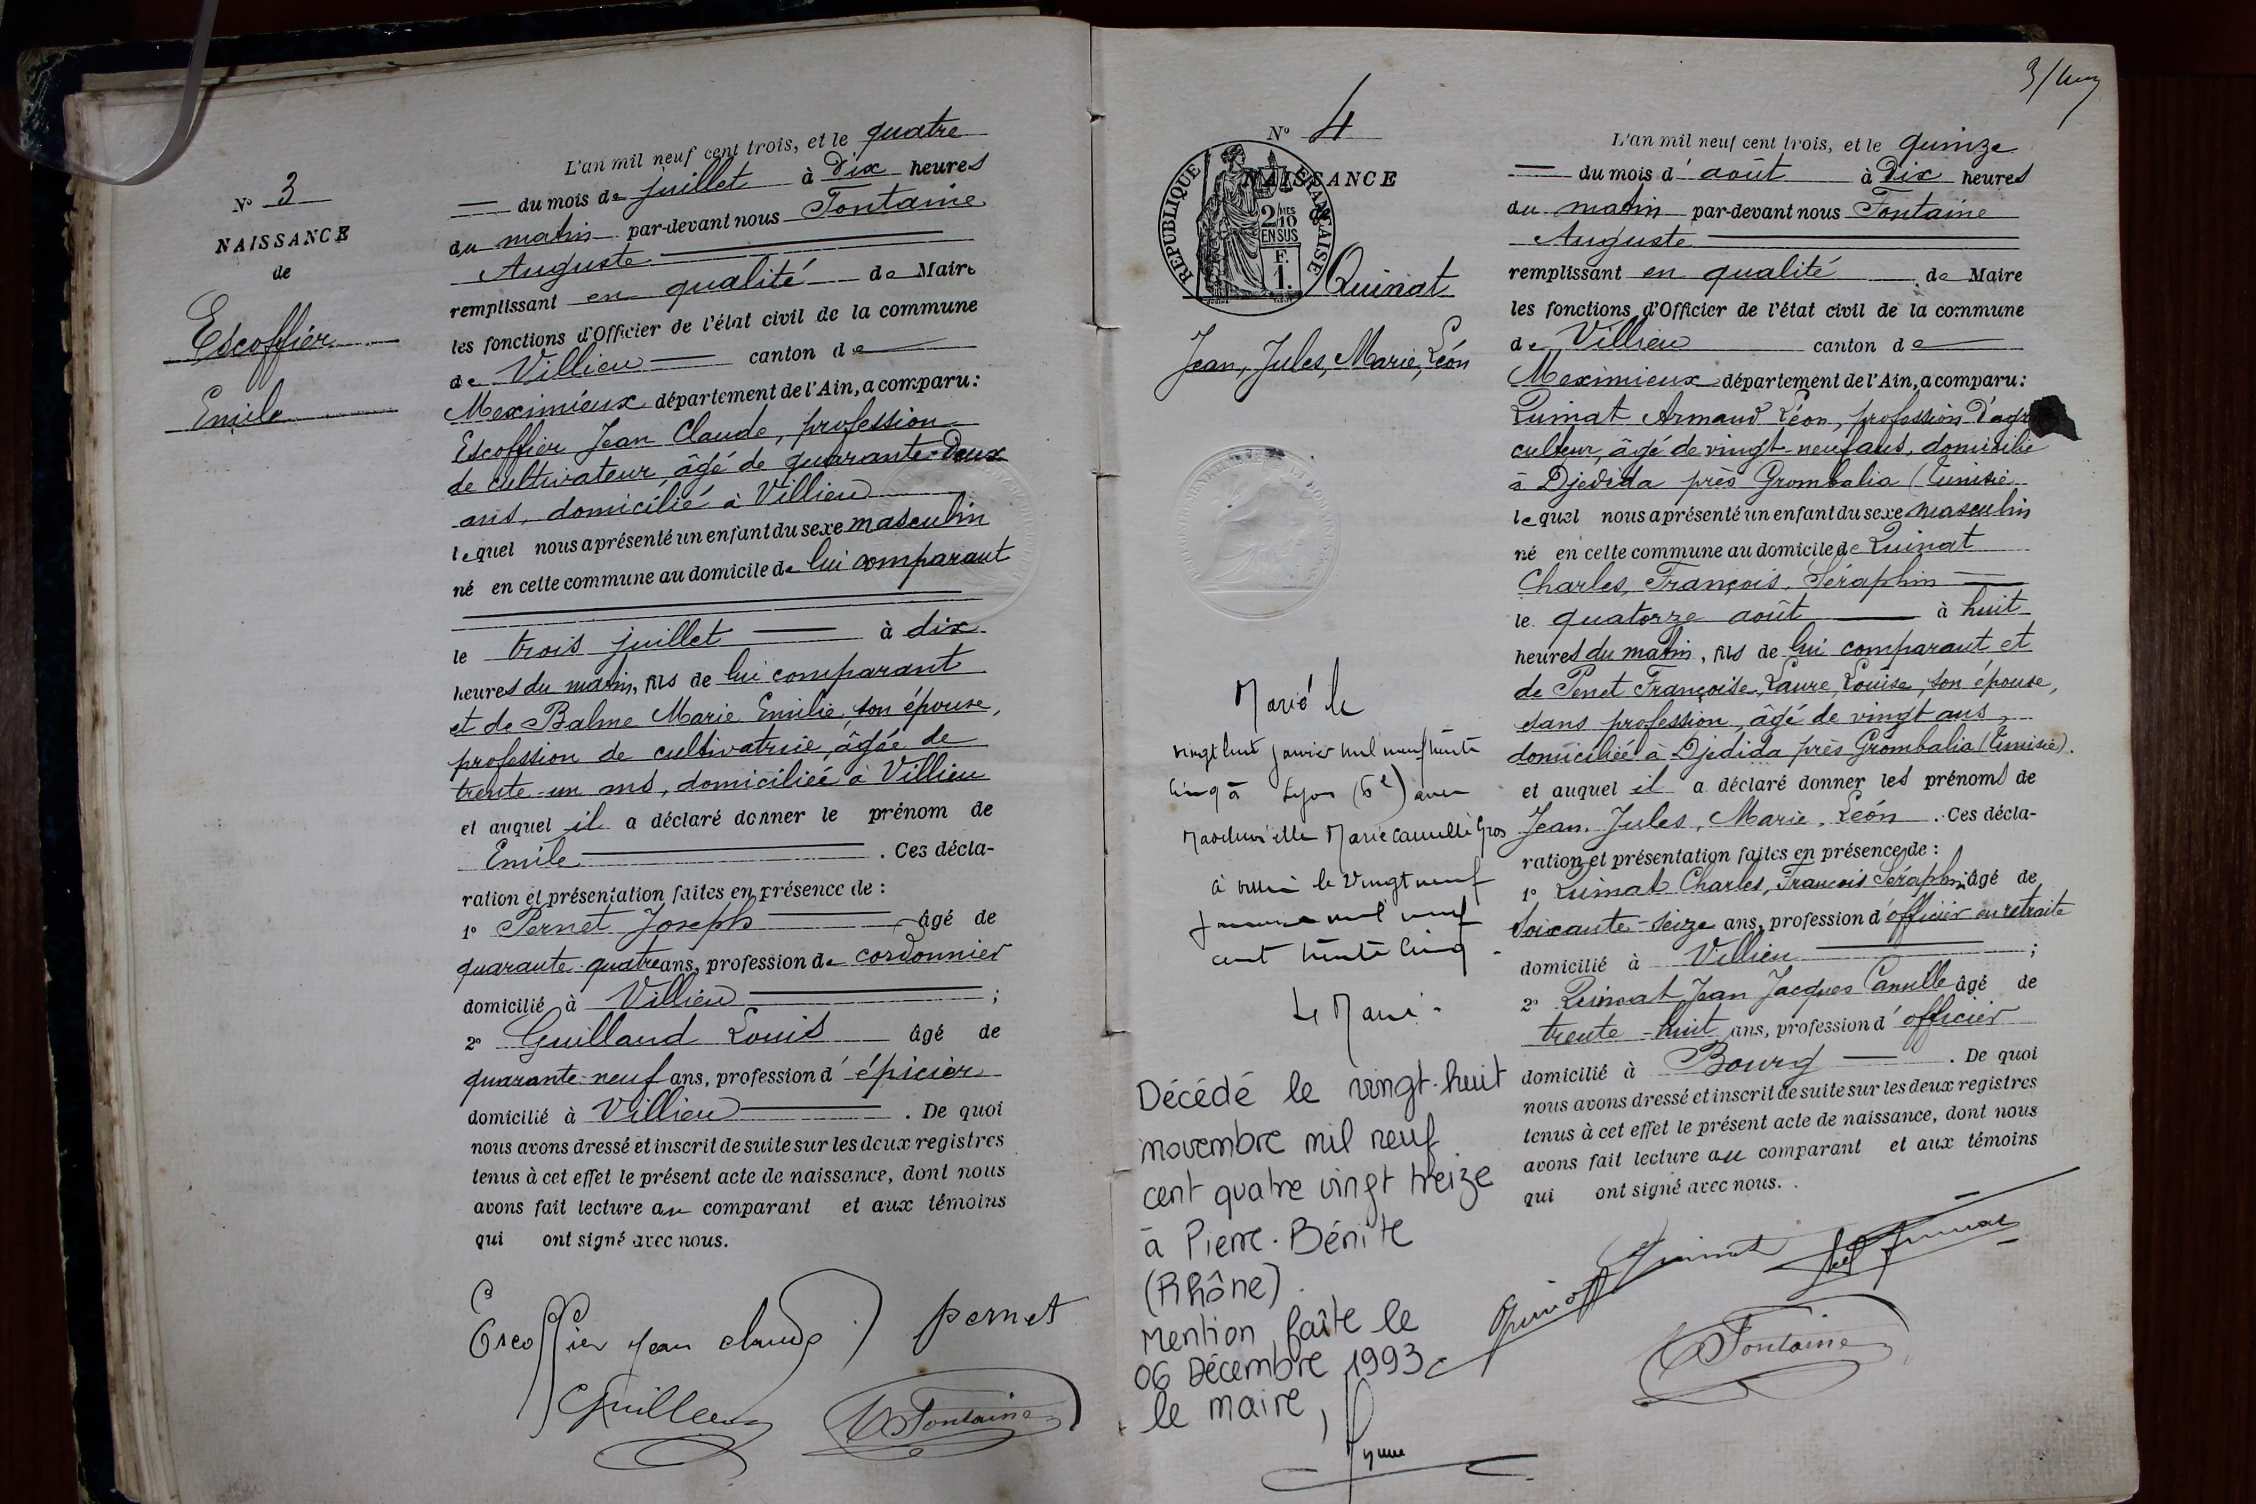 N° 3
NAISSANCE
de
Escoffier
Emile
L'an mil neuf cent trois, et le quatre
du mois de juillet à Dix heures
du matin par-devant nous Fontaine
Auguste
remplissant en qualité de Maire
les fonctions d'Officier de l'état civil de la commune
de Villieu canton de
Meximieux département de l'Ain, a comparu:
Escoffier Jean Claude, profession
de cultivateur âgé de quarante-Deux
ans, domicilié à Villieu
lequel nous a présenté un enfant du sexe masculin
né en cette commune au domicile de lui comparant
le trois juillet à dix
heures du matin, fils de lui comparant
et de Balme Marie Emilie, son épouse,
profession de cultivatrice, âgée de
trente-un ans, domiciliée à Villieu
et auquel il a déclaré donner le prénom de
Emile. Ces décla-
ration et présentation faites en présence de :
1° Pernet Joseph âgé de
quarante-quatre ans, profession de cordonnier
domicilié à Villieu ;
2° Guilland Louis âgé de
quarante-neuf ans, profession d'épicier
domicilié à Villieu. De quoi
nous avons dressé et inscrit de suite sur les deux registres
tenus à cet effet le présent acte de naissance, dont nous
avons fait lecture au comparant et aux témoins
qui ont signé avec nous.
Escoffier jean claude pernet
Guilland A Fontaine
3/
N° 4
NAISSANCE
de
REPUBLIQUE FRANÇAISE
2/10 EN SUS
F. 1.
Quinat
Jean, Jules, Marie, Léon
Marié le
vingt huit janvier mil neuf trente
cinq à Lyon (6e) avec
Mademoiselle Marie Camille Gros
à Villieu le vingt neuf
janvier mil neuf
cent trente cinq
Le Maire
Décédé le vingt-huit
novembre mil neuf
cent quatre vingt treize
à Pierre-Bénite
(Rhône).
Mention faite le
06 Décembre 1993
le maire,
L'an mil neuf cent trois, et le quinze
du mois d'août à Dix heures
du matin par-devant nous Fontaine
Auguste
remplissant en qualité de Maire
les fonctions d'Officier de l'état civil de la commune
de Villieu canton de
Meximieux département de l'Ain, a comparu:
Quinat Armand Léon, profession d'agri
culteur, âgé de vingt-neuf ans, domicilié
à Djedida près Grombalia (Tunisie
lequel nous a présenté un enfant du sexe masculin
né en cette commune au domicile de Quinat
Charles, François, Séraphin
le quatorze août à huit
heures du matin, fils de lui comparant et
de Penet Françoise, Laure, Louise, son épouse,
sans profession, âgé de vingt ans,
domiciliée à Djedida près Grombalia (Tunisie).
et auquel il a déclaré donner les prénoms de
Jean, Jules, Marie, Léon. Ces décla-
ration et présentation faites en présence de :
1° Quinat Charles, François Séraphin âgé de
soixante-seize ans, profession d'officier en retraite
domicilié à Villieu ;
2° Quinat Jean Jacques Camille âgé de
trente-huit ans, profession d'officier
domicilié à Bourg. De quoi
nous avons dressé et inscrit de suite sur les deux registres
tenus à cet effet le présent acte de naissance, dont nous
avons fait lecture au comparant et aux témoins
qui ont signé avec nous.
Quinat Quinat
A Fontaine